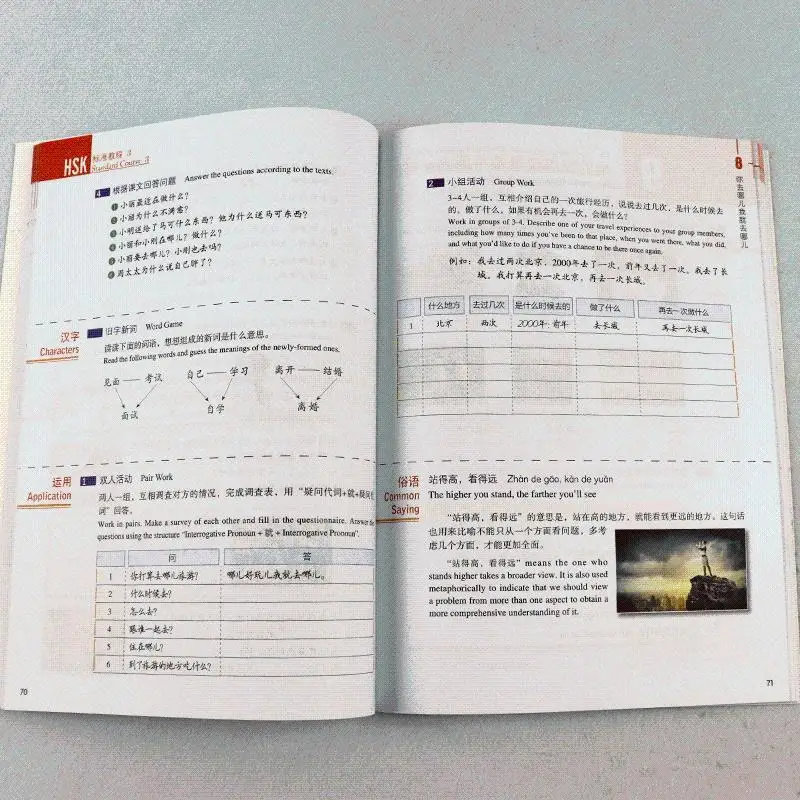 HSK 标准教程 3
Standard Course 3
4 根据课文回答问题 Answer the questions according to the texts.
1 小丽最近在做什么?
2 小丽为什么不满意?
3 小明送给了马可什么东西?他为什么送马可东西?
4 小丽和小刚在哪儿?做什么?
5 小丽要去哪儿?小刚也去吗?
6 周太太为什么说自己胖了?
汉字
Characters
旧字新词 Word Game
读读下面的词语,想想组成的新词是什么意思。
Read the following words and guess the meanings of the newly-formed ones.
见面 考试 自己 学习 离开 结婚
面试 自学 离婚
运用
Application
1 双人活动 Pair Work
两人一组,互相调查对方的情况,完成调查表,用“疑问代词+就+疑问代
词”回答。
Work in pairs. Make a survey of each other and fill in the questionnaire. Answer the
questions using the structure “Interrogative Pronoun + 就 + Interrogative Pronoun”.
问 答
1 你打算去哪儿旅游? 哪儿好玩儿我就去哪儿。
2 什么时候去?
3 怎么去?
4 跟谁一起去?
5 住在哪儿?
6 到了旅游的地方吃什么?
70
8
你去哪儿我就去哪儿
2 小组活动 Group Work
3-4人一组,互相介绍自己的一次旅行经历,说说去过几次,是什么时候去
的,做了什么,如果有机会再去一次,会做什么?
Work in groups of 3-4. Describe one of your travel experiences to your group members,
including how many times you've been to that place, when you went there, what you did,
and what you'd like to do if you have a chance to be there once again.
例如:我去过两次北京,2000年去了一次,前年又去了一次,我去了长
城。我打算再去一次北京,再去一次长城。
什么地方 去过几次 是什么时候去的 做了什么 再去一次做什么
1 北京 两次 2000年、前年 去长城 再去一次长城
俗语
Common
Saying
站得高,看得远 Zhàn de gāo, kàn de yuǎn
The higher you stand, the farther you'll see
“站得高,看得远”的意思是,站在高的地方,就能看到更远的地方。这句话
也用来比喻不能只从一个方面看问题,多考
虑几个方面,才能更加全面。
“站得高,看得远” means the one who
stands higher takes a broader view. It is also used
metaphorically to indicate that we should view
a problem from more than one aspect to obtain a
more comprehensive understanding of it.
71